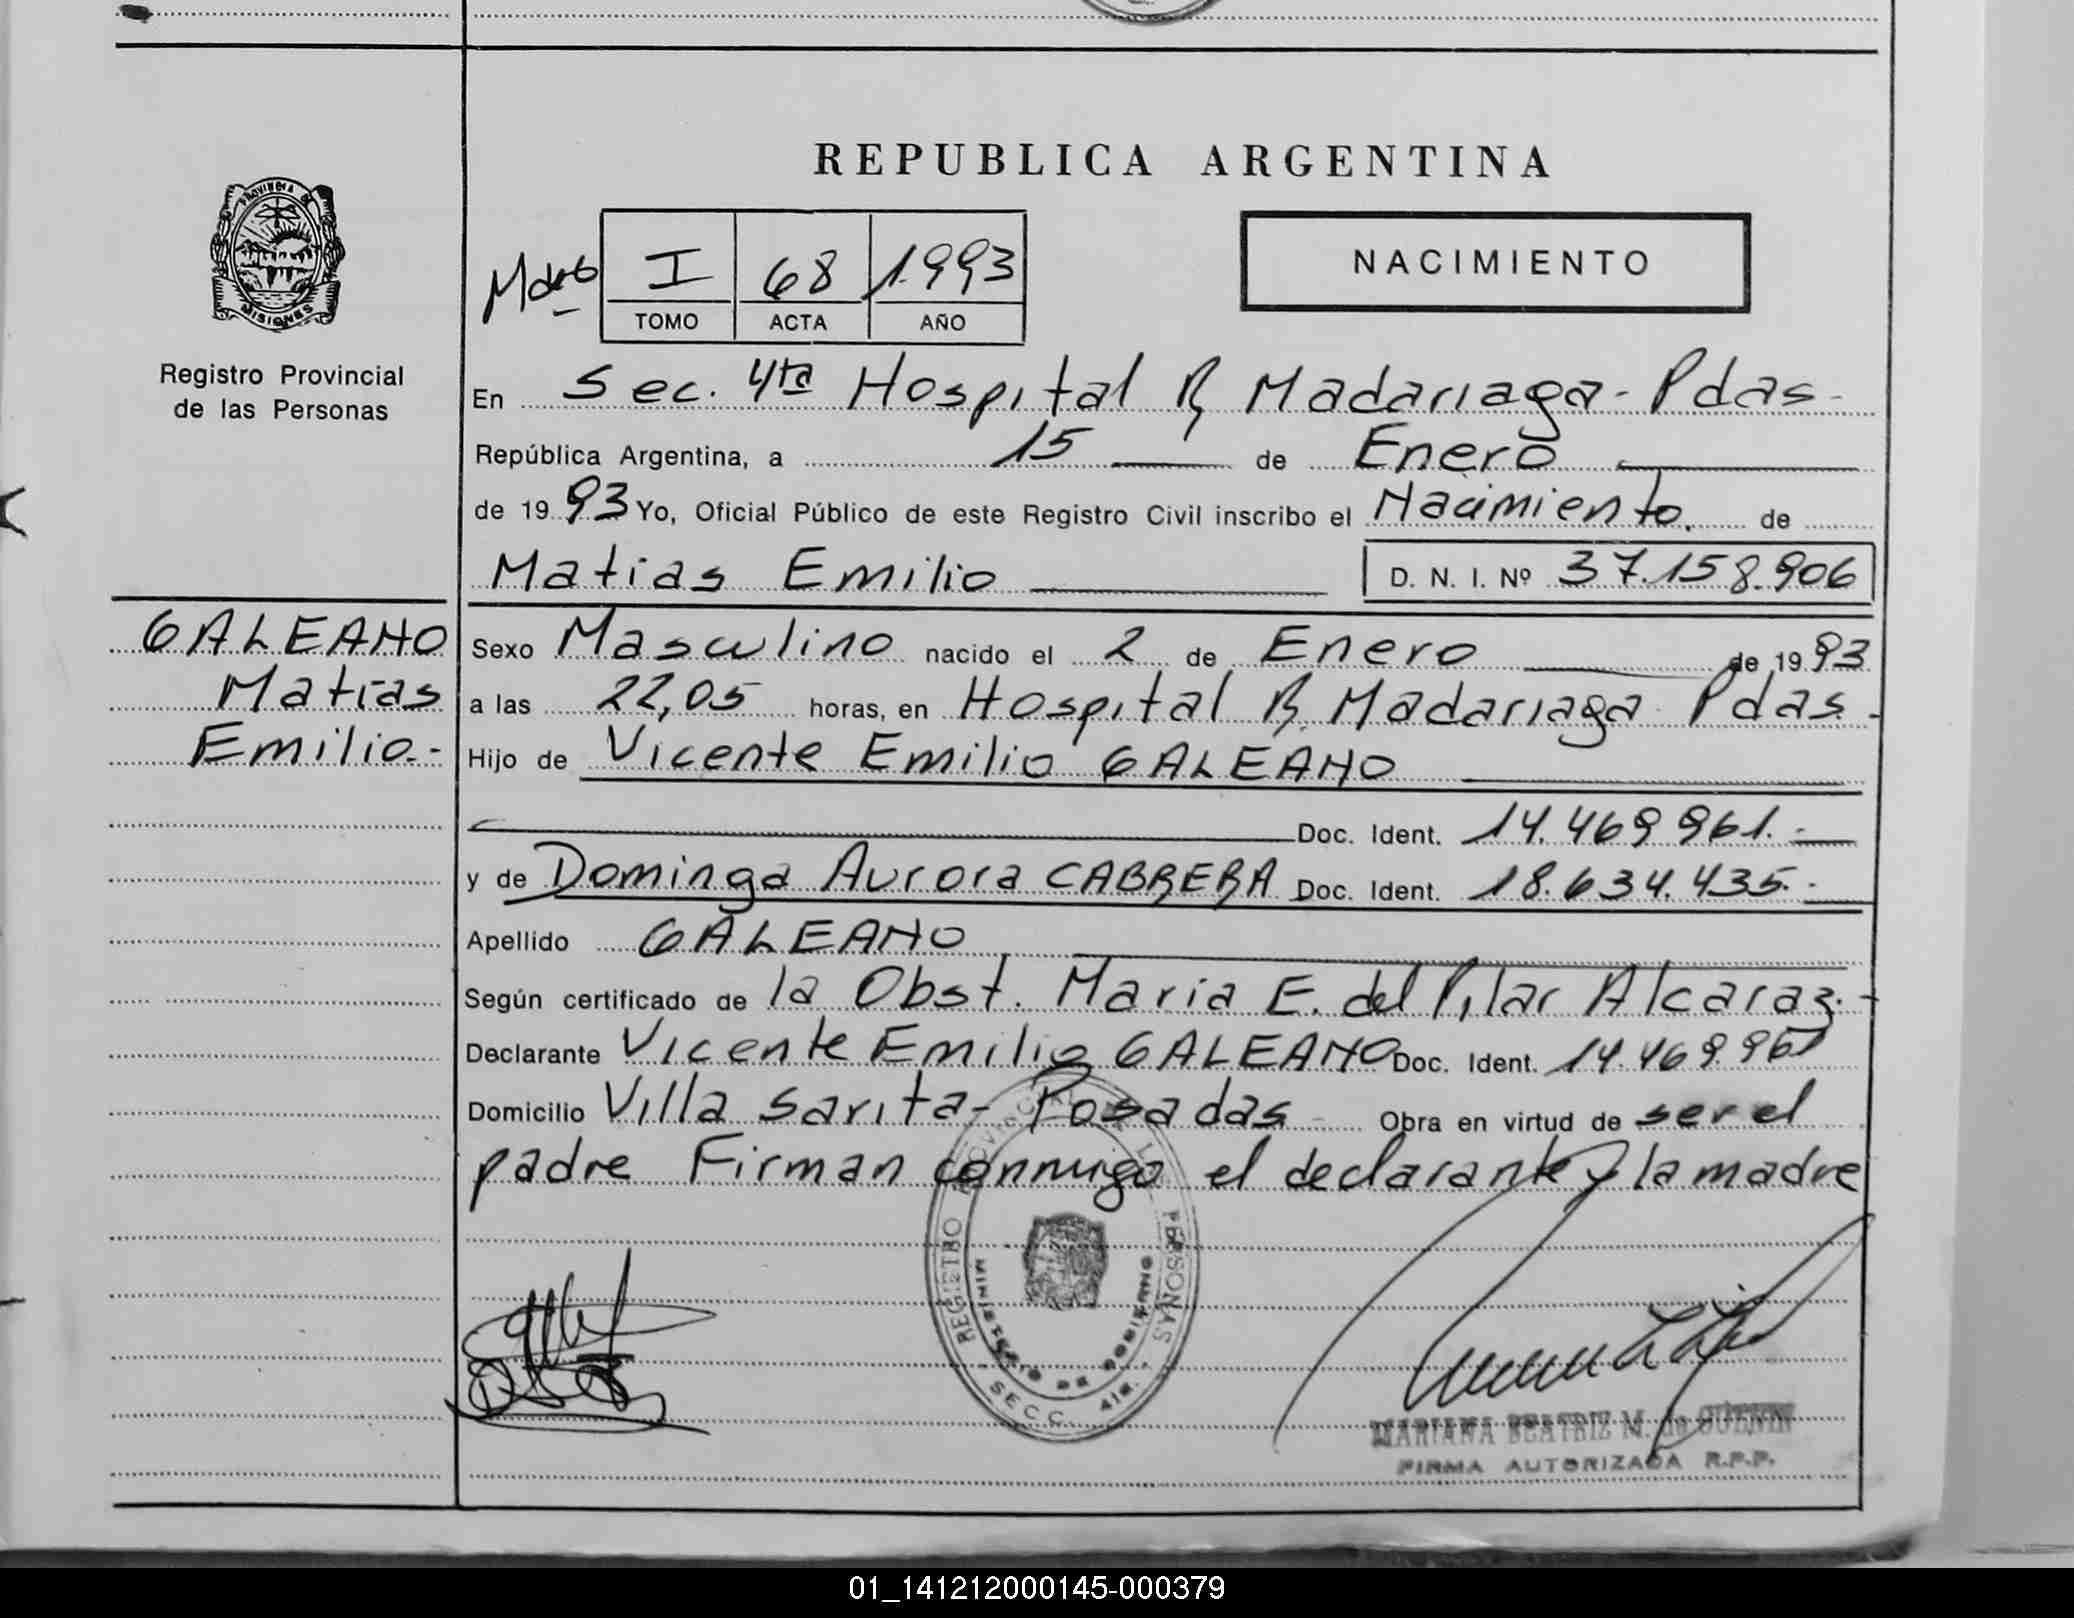 REPUBLICA ARGENTINA
PROVINCIA DE
MISIONES
Registro Provincial
de las Personas
I 68 1993
TOMO ACTA AÑO
NACIMIENTO
En Sec. 4ta Hospital R Madariaga - Pdas -
República Argentina, a 15 de Enero
de 1993 Yo, Oficial Público de este Registro Civil inscribo el Nacimiento. de
Matias Emilio D. N. I. Nº 37.158.906
GALEANO
Matias
Emilio.-
Sexo Masculino nacido el 2 de Enero de 1993
a las 22,05 horas, en Hospital R. Madariaga Pdas.-
Hijo de Vicente Emilio GALEANO
Doc. Ident. 14.469.961.-
y de Dominga Aurora CABRERA Doc. Ident. 18.634.435.-
Apellido GALEANO
Según certificado de la Obst. Maria E. del Pilar Alcaraz.-
Declarante Vicente Emilio GALEANO Doc. Ident. 14.469.961
Domicilio Villa Sarita - Posadas - Obra en virtud de ser el
padre Firman conmigo el declarante y la madre
REGISTRO PROVINCIAL DE LAS PERSONAS
MINISTERIO DE GOBIERNO
SECC.
MARIANA BEATRIZ M. de
FIRMA AUTORIZADA R.P.P.
01_141212000145-000379